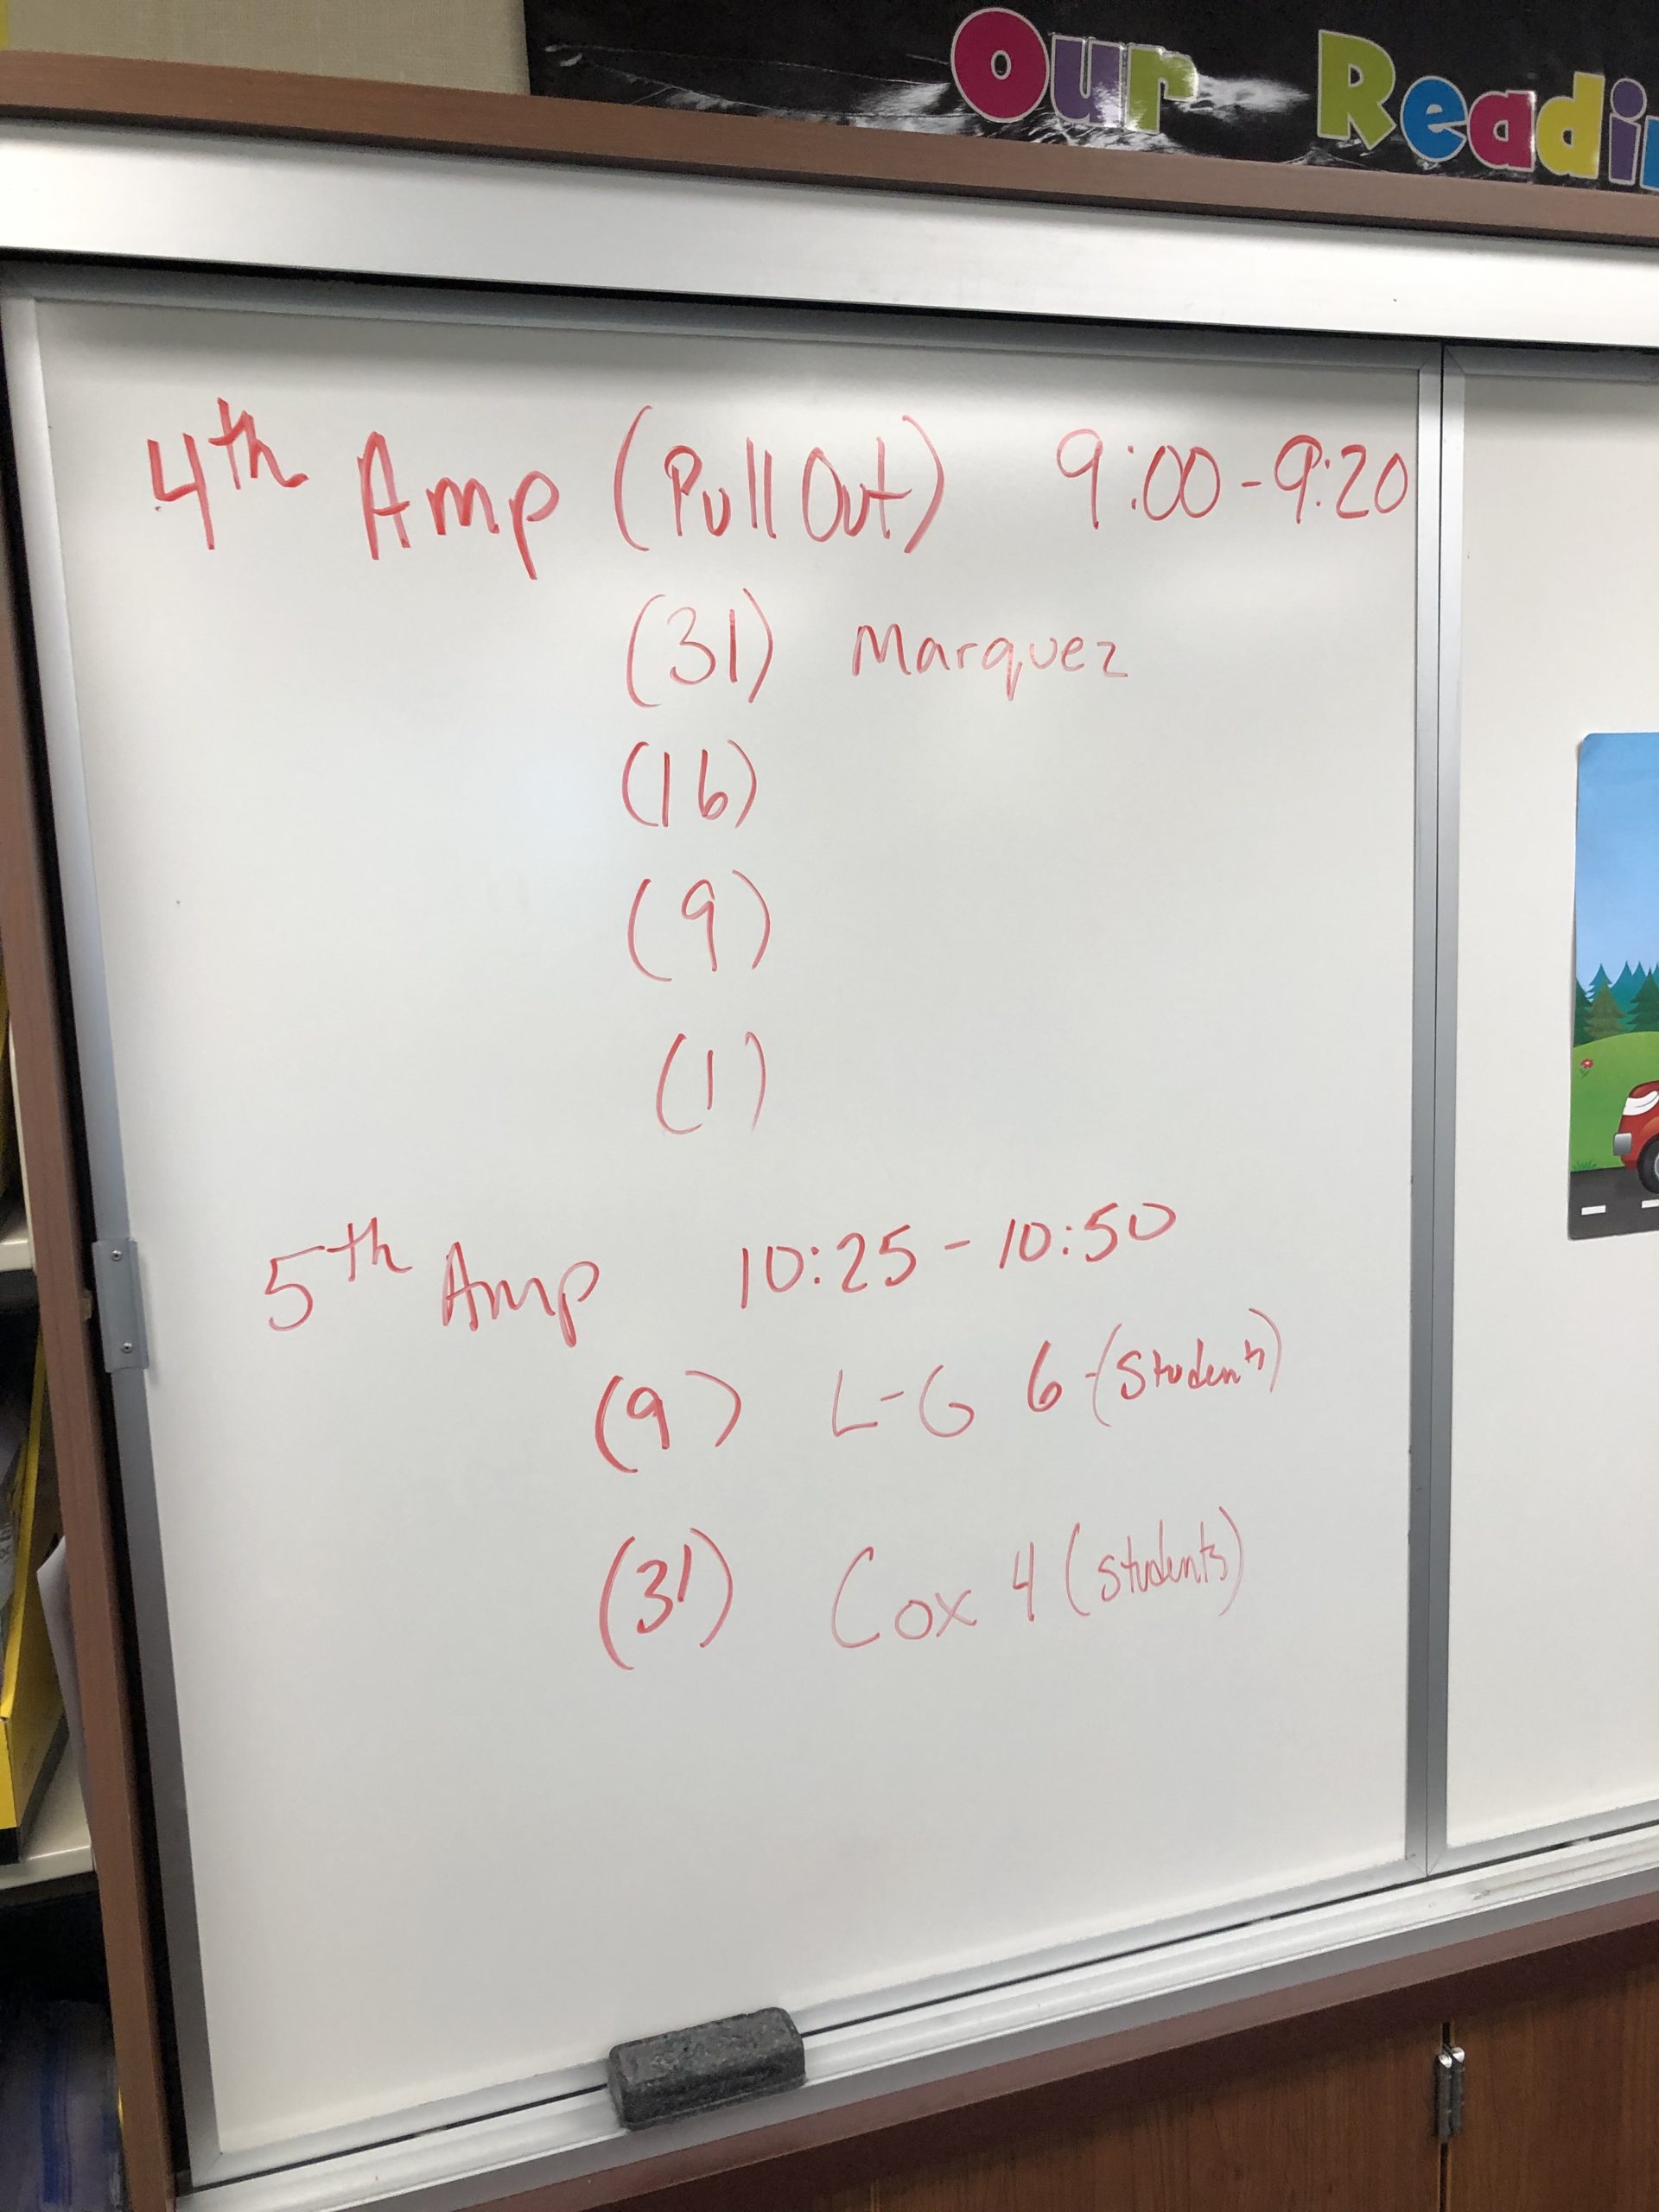 Our Readin
4th Amp (Pull Out) 9:00-9:20
(31) Marquez
(16)
(9)
(1)
5th Amp 10:25-10:50
(9) L-G 6-(Students)
(31) Cox 4 (students)